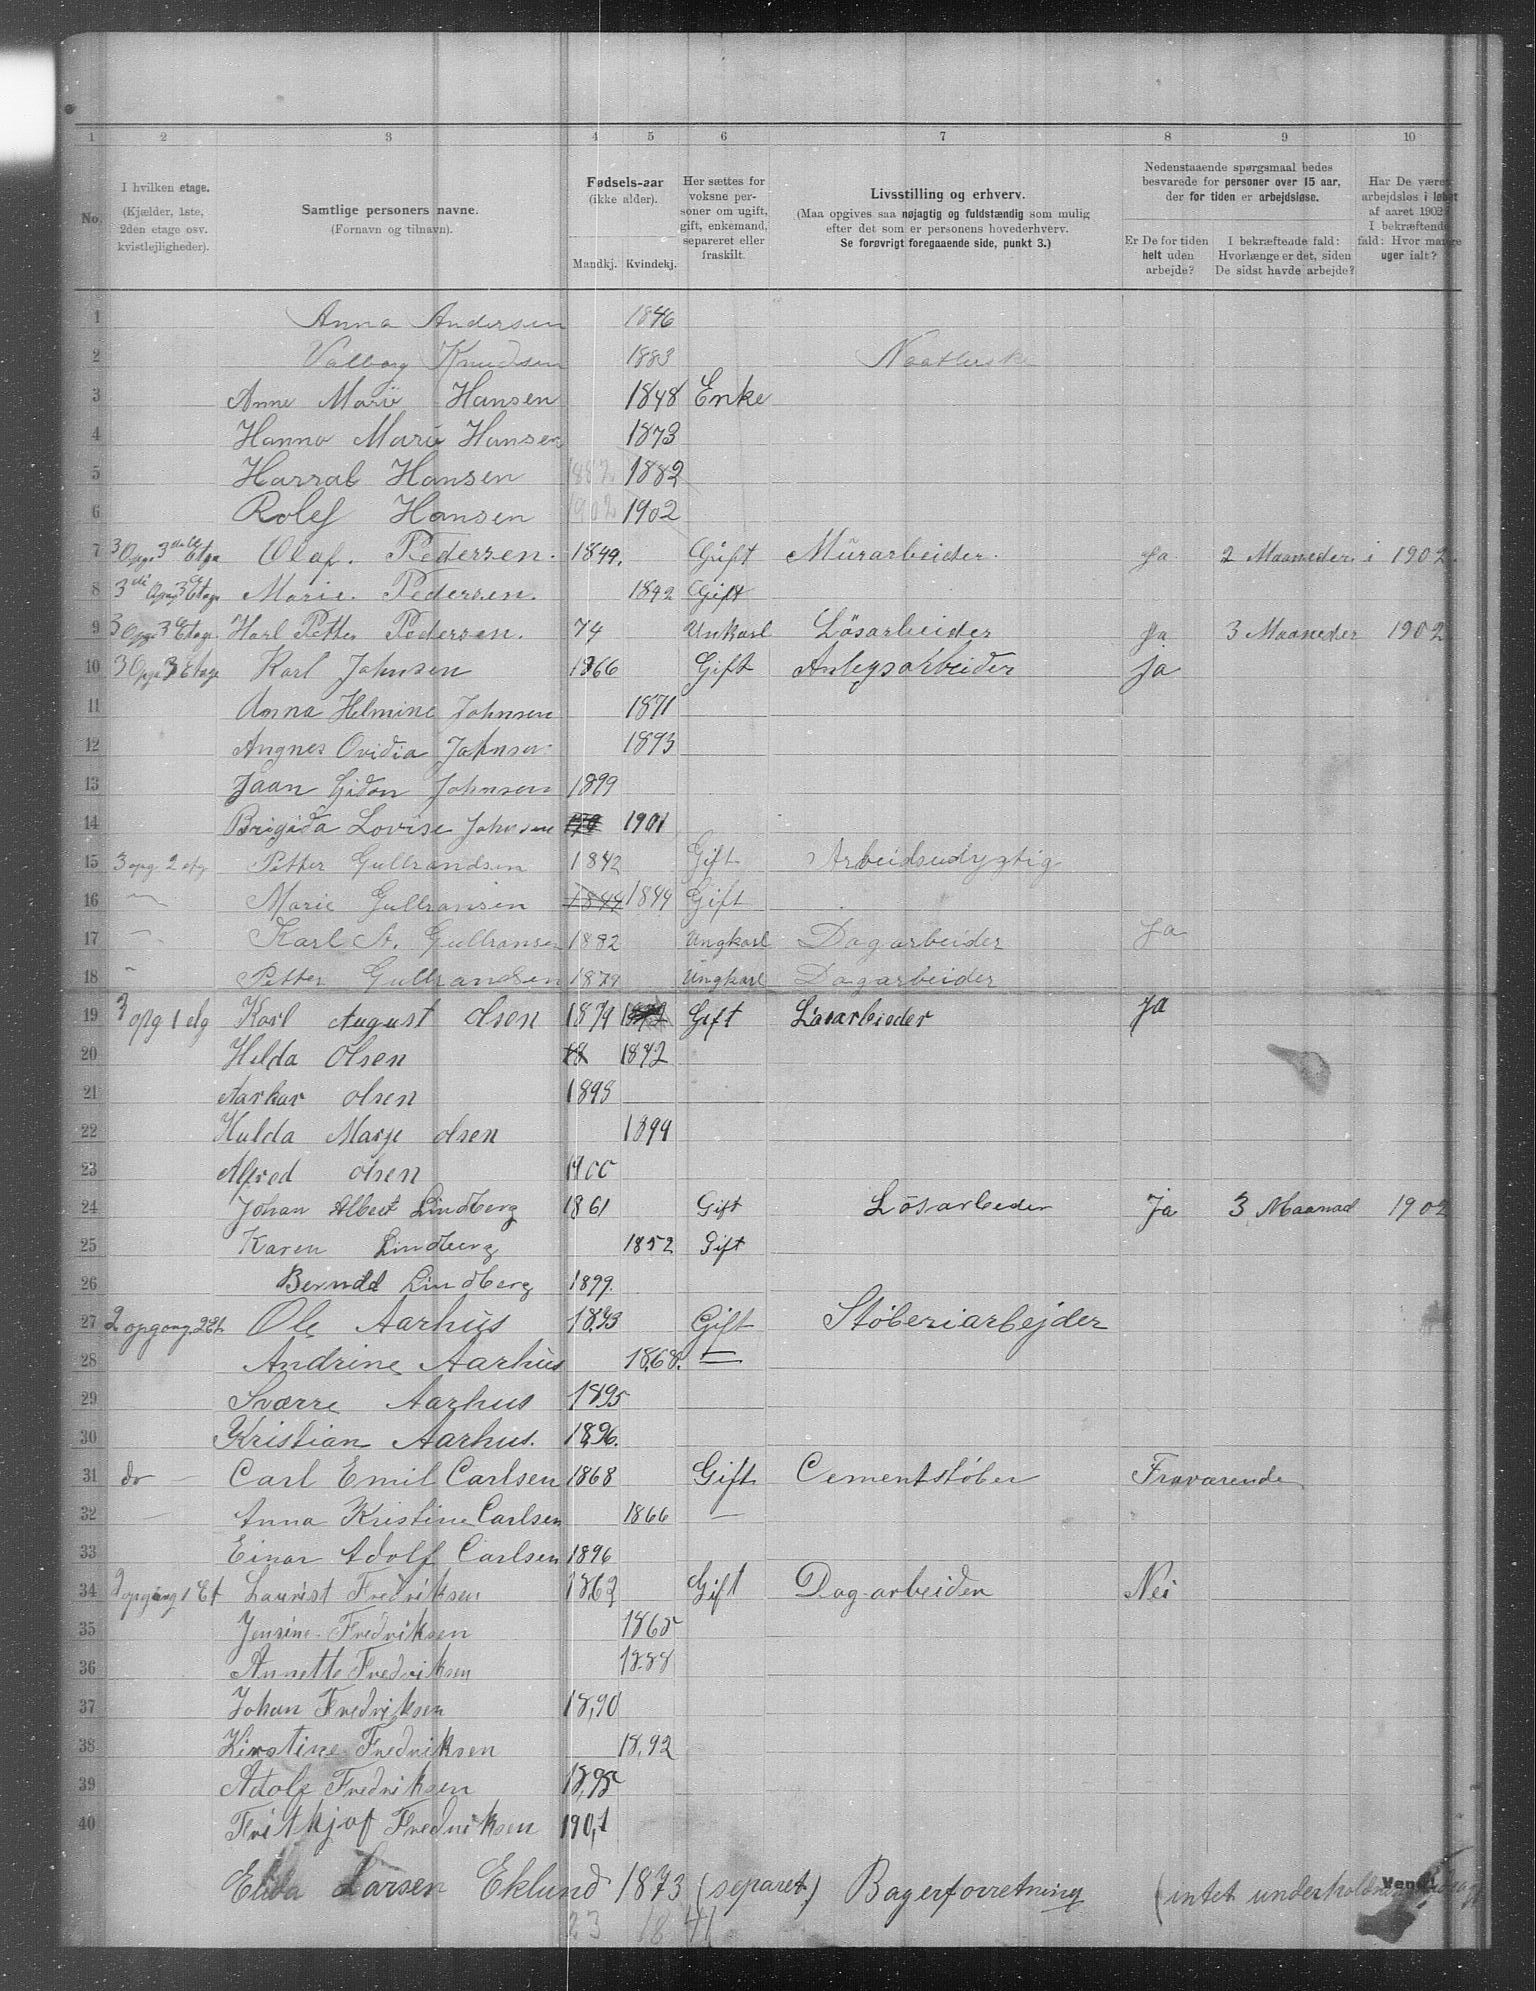 1 2 3 4 5 6 7 8 9 10
No. I hvilken etage. (Kjælder, 1ste, 2den etage osv. kvistlejligheder). Samtlige personers navne. (Fornavn og tilnavn). Fødsels-aar (ikke alder). Mandkj. Kvindekj. Her sættes for voksne personer om ugift, gift, enkemand, separeret eller fraskilt. Livsstilling og erhverv. (Maa opgives saa nøjagtig og fuldstændig som mulig efter det som er personens hovederhverv. Se forøvrigt foregaaende side, punkt 3.) Nedenstaaende spørgsmaal bedes besvarede for personer over 15 aar, der for tiden er arbejdsløse. Er De for tiden helt uden arbejde? I bekræftende fald: Hvorlænge er det, siden De sidst havde arbejde? Har De været arbejdsløs i løbet af aaret 1902? I bekræftende fald: Hvor mange uger ialt?
1 Anna Andersen 1846
2 Valborg Knudsen 1883
3 Anne Marie Hansen 1848 Enke
4 Hanna Marie Hansen 1873
5 Harral Hansen 1882 1882
6 Rolef Hansen 1902 1902
7 3 Opg. 3die Etage Olaf. Pedersen. 1849. Gift Murarbeider. Ja 2 Maaneder i 1902.
8 3di Opg 3 Etage Marie. Pedersen. 1842 Gift
9 3 Opg. 3 Etage. Karl Petter Pedersen. 74 Unkarl Løsarbeider Ja 3 Maaneder 1902
10 3 Opg. 3 Etage Karl Johnsen 1866 Gift Anlegsarbeider ja
11 Anna Helmine Johnsen 1871
12 Angnes Ovidia Johnsen 1893
13 Jaan Gidon Johnsen 1899
14 Brigida Lovise Johnsen 1901
15 3 opg 2 etg Petter Gulbrandsen 1842 Gift Arbeidsudygtig
16 " Marie Gulbransen 1844 1844 Gift
17 " Karl A. Gulbransen 1882 Ungkarl Dagarbeider Ja
18 " Petter Gulbrandsen 1879 Ungkarl Dagarbeider
19 3 opg 1 etg Karl August Olsen 1874 1872 Gift Løsarbieder Ja
20 Helda Olsen 18 1872
21 Aarkar olsen 1898
22 Hulda Marje olsen 1899
23 Alfred olsen 1900
24 Johan Albert Lindberg 1861 Gift Løsarbeder Ja 3 Maanad 1902
25 Karen Lindberg 1852 Gift
26 Berndt Lindberg 1899.
27 2 opgang 2 Et. Ole Aarhus 1873 Gift Støberiarbejder
28 Andrine Aarhus 1868. —
29 Sværre Aarhus 1895
30 Kristian Aarhus. 1896.
31 do — Carl Emil Carlsen 1868 Gift Cementstøber Fraværende
32 — Anna Kristine Carlsen 1866 —
33 Einar Adolf Carlsen 1896
34 2 opgang 1 Et Laurist Fredriksen 1862 Gift Dag-arbeiden Nei
35 Jensine Fredriksen 1865
36 Annette Fredriksen 1888
37 Johan Fredriksen 18,90
38 Kirstine Fredriksen 18,92
39 Adolf Fredriksen 18,95
40 Frithjof Fredriksen 190,1
Elida Larsen Eklund 1873 (separet.) Bagerforretning (intet
Vend!
23 18 41